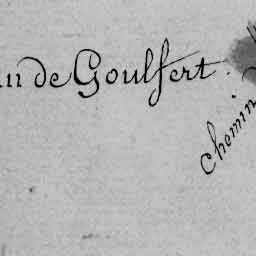 de Goulfert.
chemin